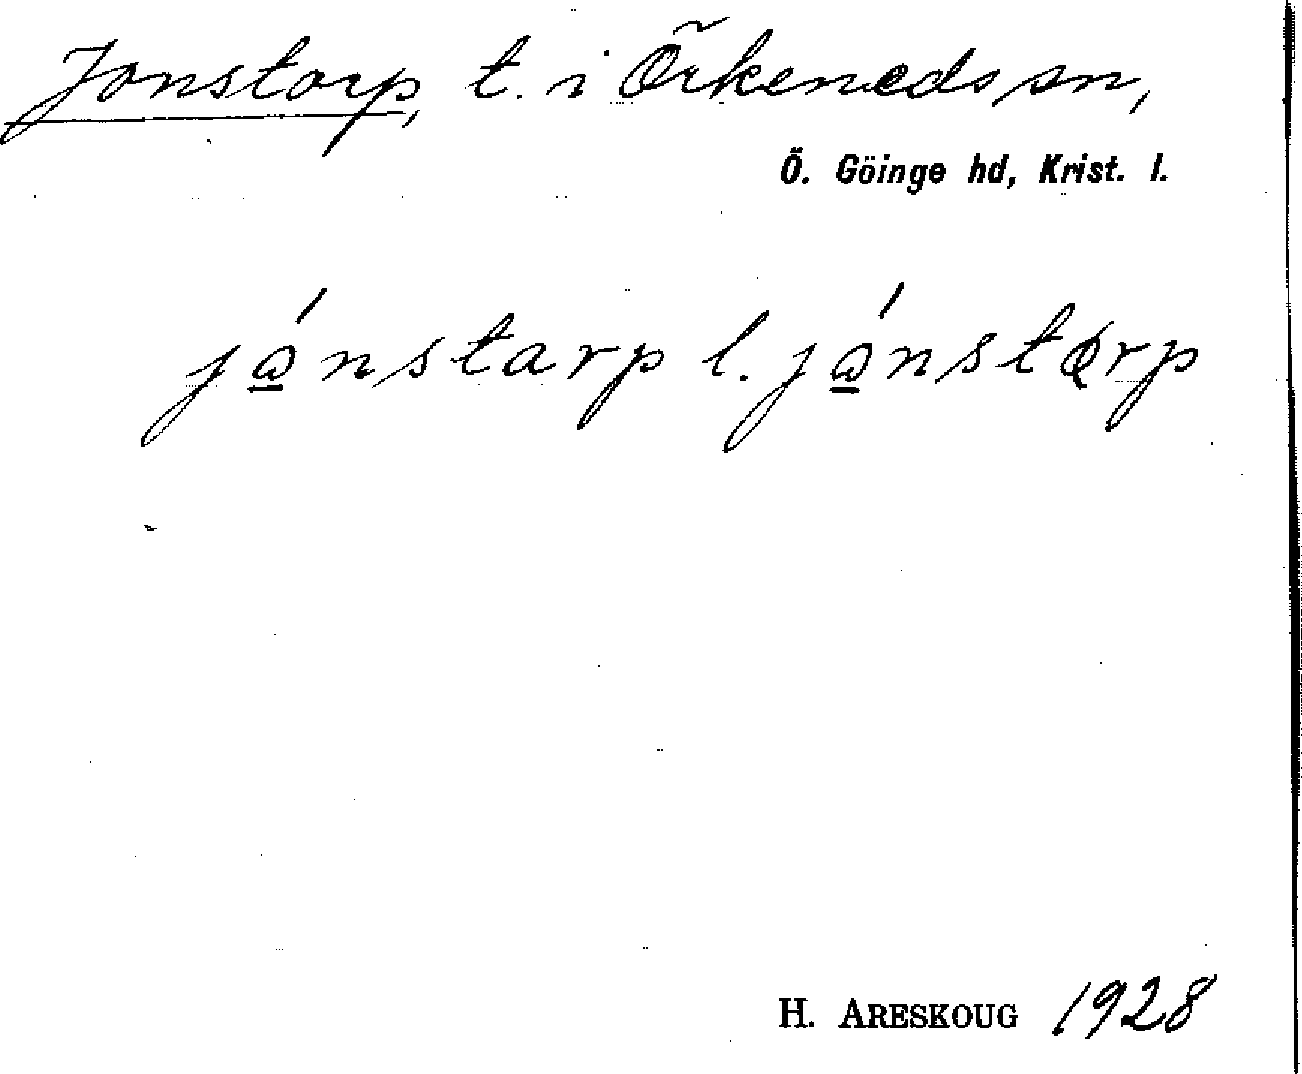 Jonstorp, t. i Örkeneds sn,
Ö. Göinge hd, Krist. l.
jánstarp l. jánstørp
H. ARESKOUG 1928